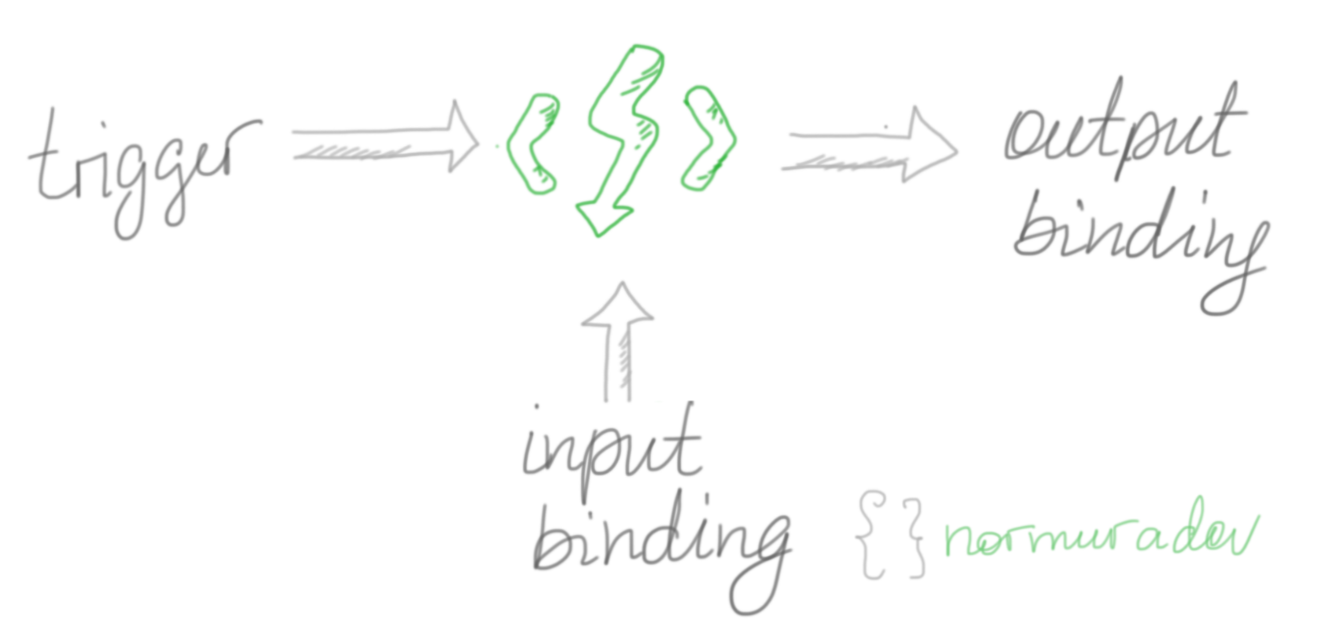 trigger
output
binding
input
binding
{ } normuradov